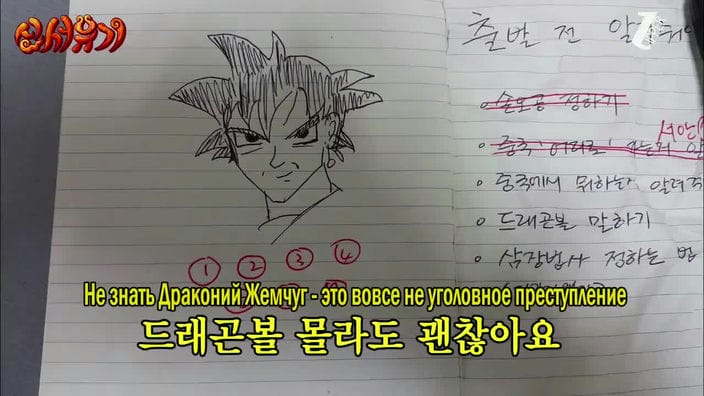 신서유기
출발 전
• 손오공 정하기
서안
• 중국에서 뭐하는지
• 드래곤볼 말하기
• 삼장법사 정하는 법
① ② ③ ④
Не знать Драконий Жемчуг - это вовсе не уголовное преступление
드래곤볼 몰라도 괜찮아요